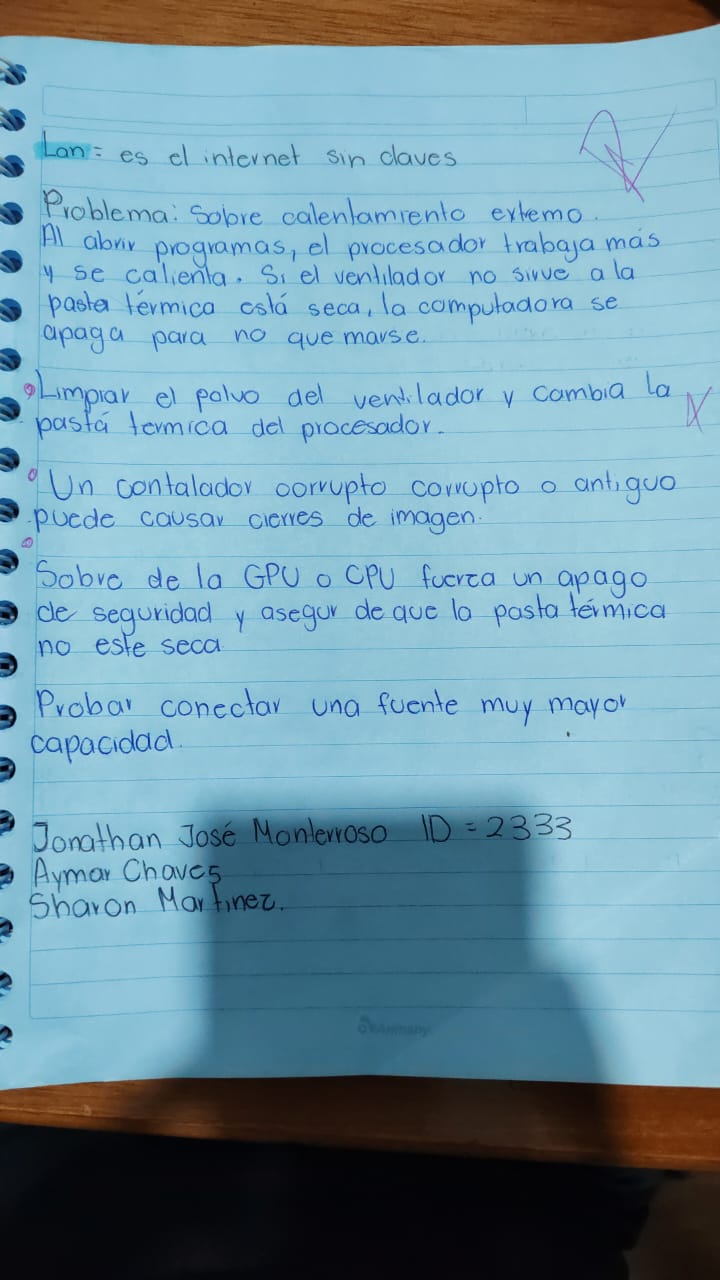 Lan = es el internet sin claves
Problema: Sobre calentamiento extemo.
Al abrir programas, el procesador trabaja más
y se calienta. Si el ventilador no sirve a la
pasta térmica está seca, la computadora se
apaga para no que marse.
Limpiar el polvo del ventilador y cambia la
pastá termica del procesador.
Un contalador corrupto corrupto o antiguo
puede causar cierres de imagen.
Sobre de la GPU o CPU fuerza un apago
de seguridad y asegur de que la pasta térmica
no este seca
Probar conectar una fuente muy mayor
capacidad.
Jonathan José Monterroso ID = 2333
Aymar Chaves
Sharon Martinez.